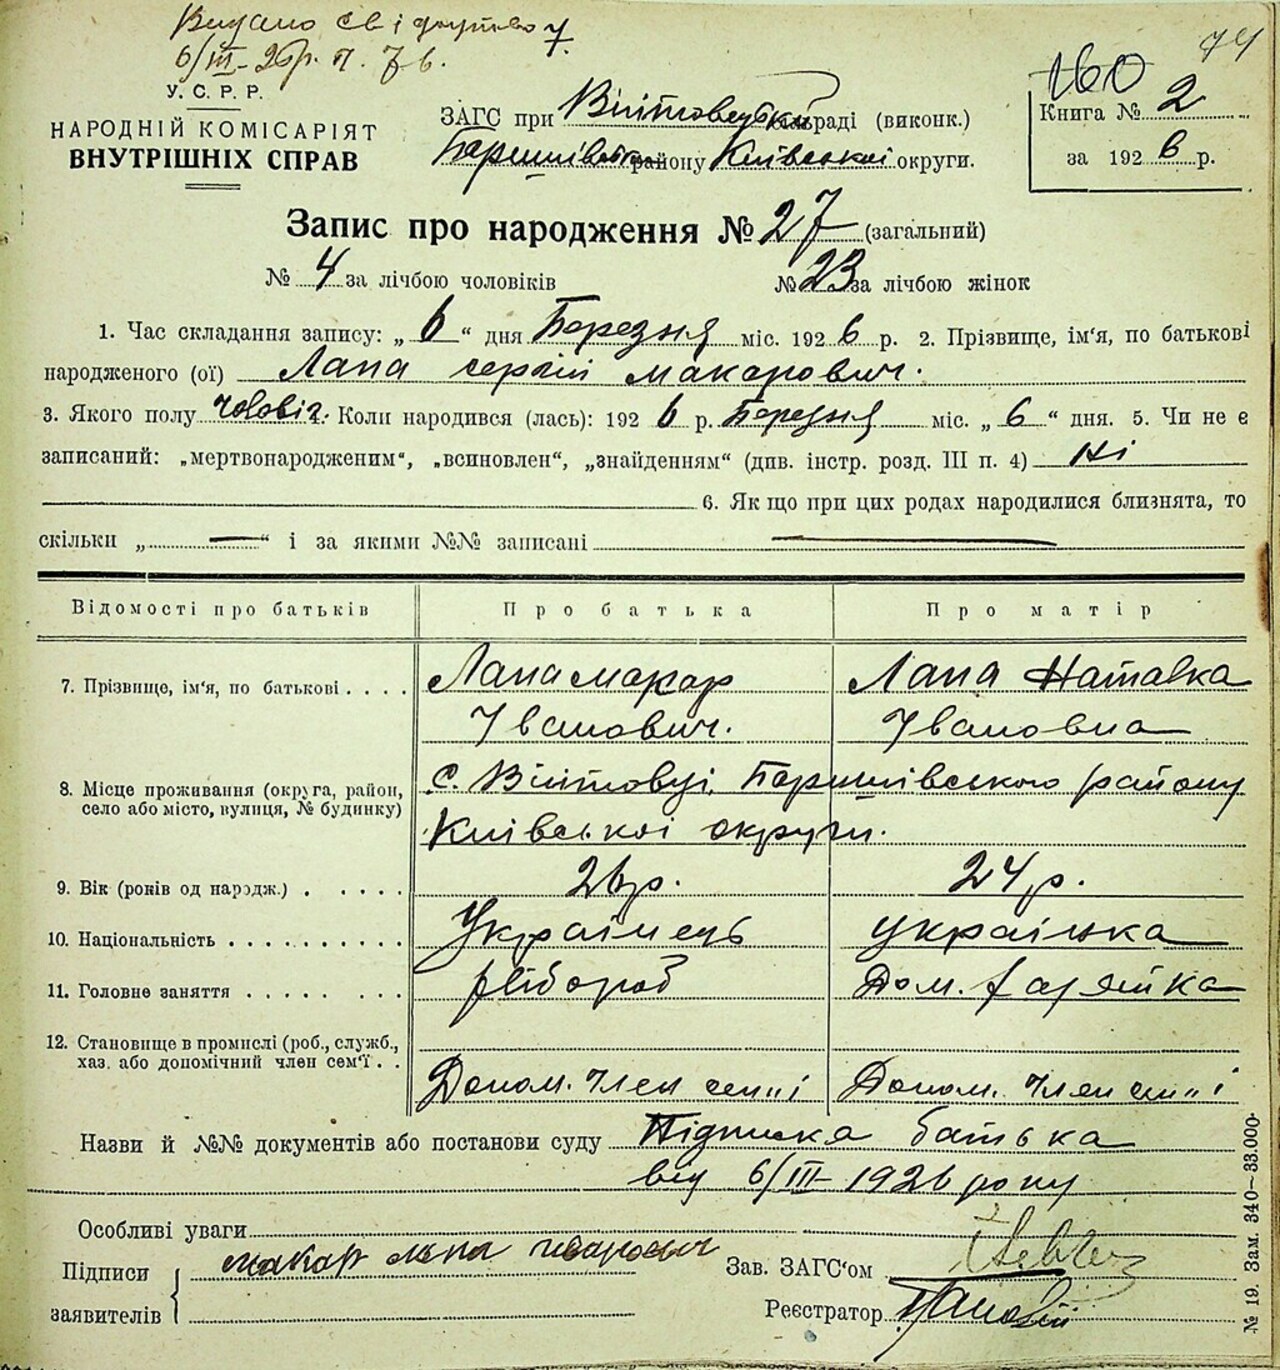 Видано свідоцтво 7.
6/III-26р. п. 7 в.
74
160
У. С. Р. Р.
НАРОДНІЙ КОМІСАРІЯТ
ВНУТРІШНІХ СПРАВ
ЗАГС при Війтовецькій сільраді (виконк.)
Баришівськ. району Київської округи.
Книга № 2
за 1926 р.
Запис про народження № 27 (загальний)
№ 4 за лічбою чоловіків № 23 за лічбою жінок
1. Час складання запису: „ 6 “ дня Березня міс. 1926 р. 2. Прізвище, ім'я, по батькові
народженого (ої) Лапа Сергій Макарович.
3. Якого полу чоловіч. Коли народився (лась): 1926 р. Березня міс. „ 6 “ дня. 5. Чи не є
записаний: „мертвонародженим“, „всиновлен“, „знайденням“ (див. інстр. розд. III п. 4) Ні
6. Як що при цих родах народилися близнята, то
скільки „ — “ і за якими №№ записані —
Відомості про батьків Про батька Про матір
7. Прізвище, ім'я, по батькові . . . . Лапа Макар Лапа Наталка
Іванович. Івановна
8. Місце проживання (округа, район, с. Війтовці, Баришівського району
село або місто, вулиця, № будинку) Київської округи.
9. Вік (років од народж.) . . . . . 26 р. 24 р.
10. Національність . . . . . . . . . . Українець Українка
11. Головне заняття . . . . . . . . хлібороб Дом. хазяйка
12. Становище в промислі (роб., служб.,
хаз. або допомічний член сем'ї . . Допом. член семії Допом. член семії
Назви й №№ документів або постанови суду Підписка батька
від 6/III-1926 року
Особливі уваги
Підписи заявителів макар лапа иванович
Зав. ЗАГС'ом
Реєстратор
№ 19. Зам. 340—33.000.